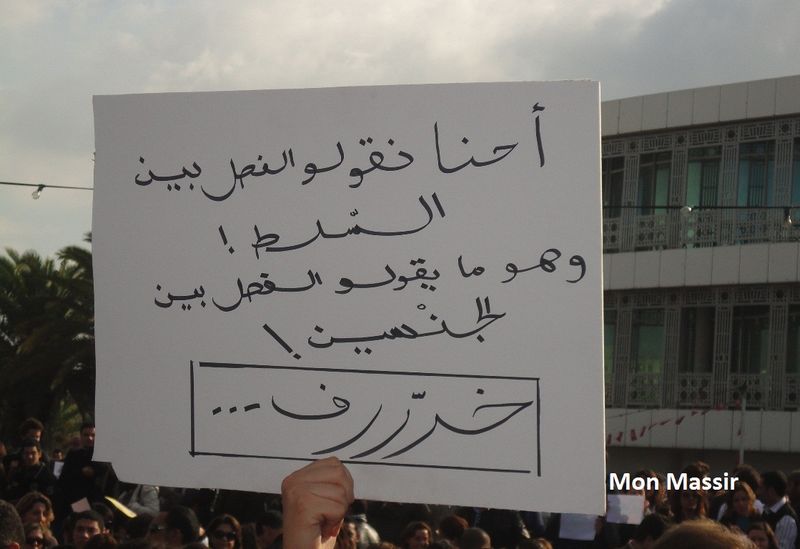 أحنا نقولو الفصل بين
السّلط !
وهو ما يقولو الفصل بين
الجنْسين !
خرّرف...
Mon Massir